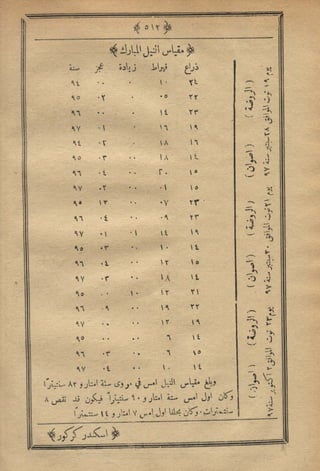 ﴿ ٥١٢ ﴾
﴿ مقياس النيل المبارك ﴾
ذراع قيراط زيادة عجز سنة
يوم ١٩ توت الموافق ٢٨ سبتمبر سنة ٩٧
( الروضة )
٢٤ ١٠ ٠٠ ٠ ٩٤
٢٢ ٠٥ ٠ ٠٢ ٩٥
٢٣ ١٤ ٠ ٠٠ ٩٦
١٩ ١٦ ٠ ٠١ ٩٧
( اصوان )
١٦ ١٨ ٠ ٠٢ ٩٤
١٤ ١٨ ٠ ٠٣ ٩٥
١٥ ٢٠ ٠ ٠٤ ٩٦
١٥ ٠١ ٠ ٠٢ ٩٧
يوم ٢١ توت الموافق ٣٠ سبتمبر سنة ٩٧
( الروضة )
٢٣ ٠٧ ٠٠ ١٣ ٩٥
٢٣ ٠٩ ٠ ٠٤ ٩٦
١٩ ١٤ ٠١ ٠١ ٩٧
( اصوان )
١٤ ١٠ ٠ ٠٣ ٩٥
١٥ ١٢ ٠ ٠٤ ٩٦
١٤ ١٨ ٠ ٠٣ ٩٧
يوم ٢٣ توت الموافق ٢ اكتوبر سنة ٩٧
( الروضة )
٢١ ٢٢ ١٠ ٠٠ ٩٥
٢٢ ١٩ ٠ ٠٩ ٩٦
١٩ ١٢ ٠ ٠٠ ٩٧
( اصوان )
١٤ ٦ ٠ ٠٠ ٩٥
١٥ ٦ ٠ ٠٣ ٩٦
١٤ ١٠ ٠ ٠٤ ٩٧
وبلغ مقياس النيل امس في ستة امتار و ٨٢ سنتيمترًا
وكان اول امس ستة امتار و ٩٠ سنتيمترًا فيكون قد نقص ٨
سنتمترات. وكان بحلفا اول امس ٧ امتار و ٤٤ سنتمترًا
﴿ اسكندر كركور ﴾